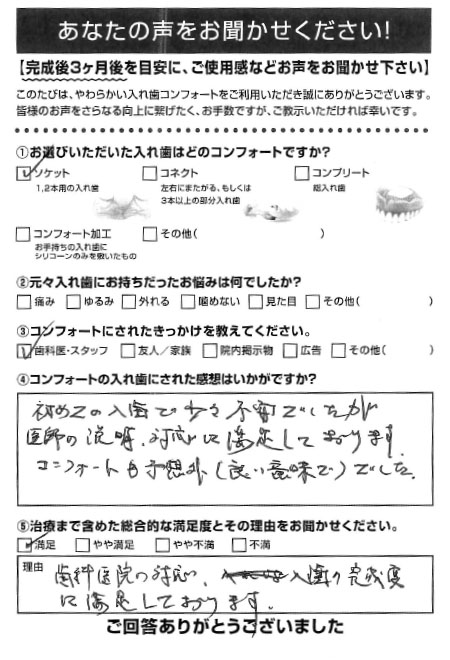 あなたの声をお聞かせください!
【完成後3ヶ月後を目安に、ご使用感などお声をお聞かせ下さい】
このたびは、やわらかい入れ歯コンフォートをご利用いただき誠にありがとうございます。
皆様のお声をさらなる向上に繋げたく、お手数ですが、ご教示いただければ幸いです。
①お選びいただいた入れ歯はどのコンフォートですか?
ソケット コネクト コンプリート
1,2本用の入れ歯 左右にまたがる、もしくは 総入れ歯
3本以上の部分入れ歯
コンフォート加工 その他( )
お手持ちの入れ歯に
シリコーンのみを敷いたもの
②元々入れ歯にお持ちだったお悩みは何でしたか?
痛み ゆるみ 外れる 噛めない 見た目 その他( )
③コンフォートにされたきっかけを教えてください。
歯科医・スタッフ 友人/家族 院内掲示物 広告 その他( )
④コンフォートの入れ歯にされた感想はいかがですか?
初めての入歯で少々不安でしたが
医師の説明、対応に満足しております。
コンフォートも予想外(良い意味で)でした。
⑤治療まで含めた総合的な満足度とその理由をお聞かせください。
満足 やや満足 やや不満 不満
理由 歯科医院の対応、入歯の完成度
に満足しております。
ご回答ありがとうございました